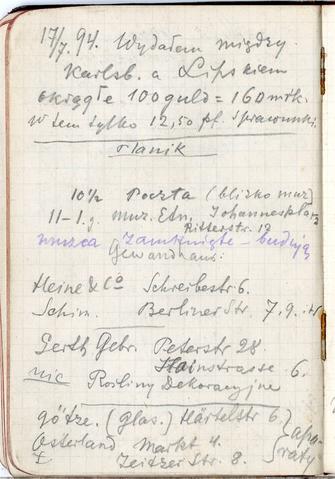 17/7. 94. Wydałem między
Karlsb. a Lipskiem
okrągłe 100 guld = 160 mrk.
w tem tylko 12,50 pf. sprawunki.
10½ Poczta (blizko muz)
11-1. g muz. Etn. Johannesplatz
Ritterstr. 12
muzea zamknięte - budują
Gewandhaus:
Heine & Co Schreberstr 6.
Schim. Berliner Str. 7. 9.
Gerth Gebr. Peterstr 28
Hainstrasse 6.
nic Rośliny Dekoracyjne
götze. (glas.) Härtelstr 6
Osterland Markt 4. aparaty
Zeitzer Str. 8.